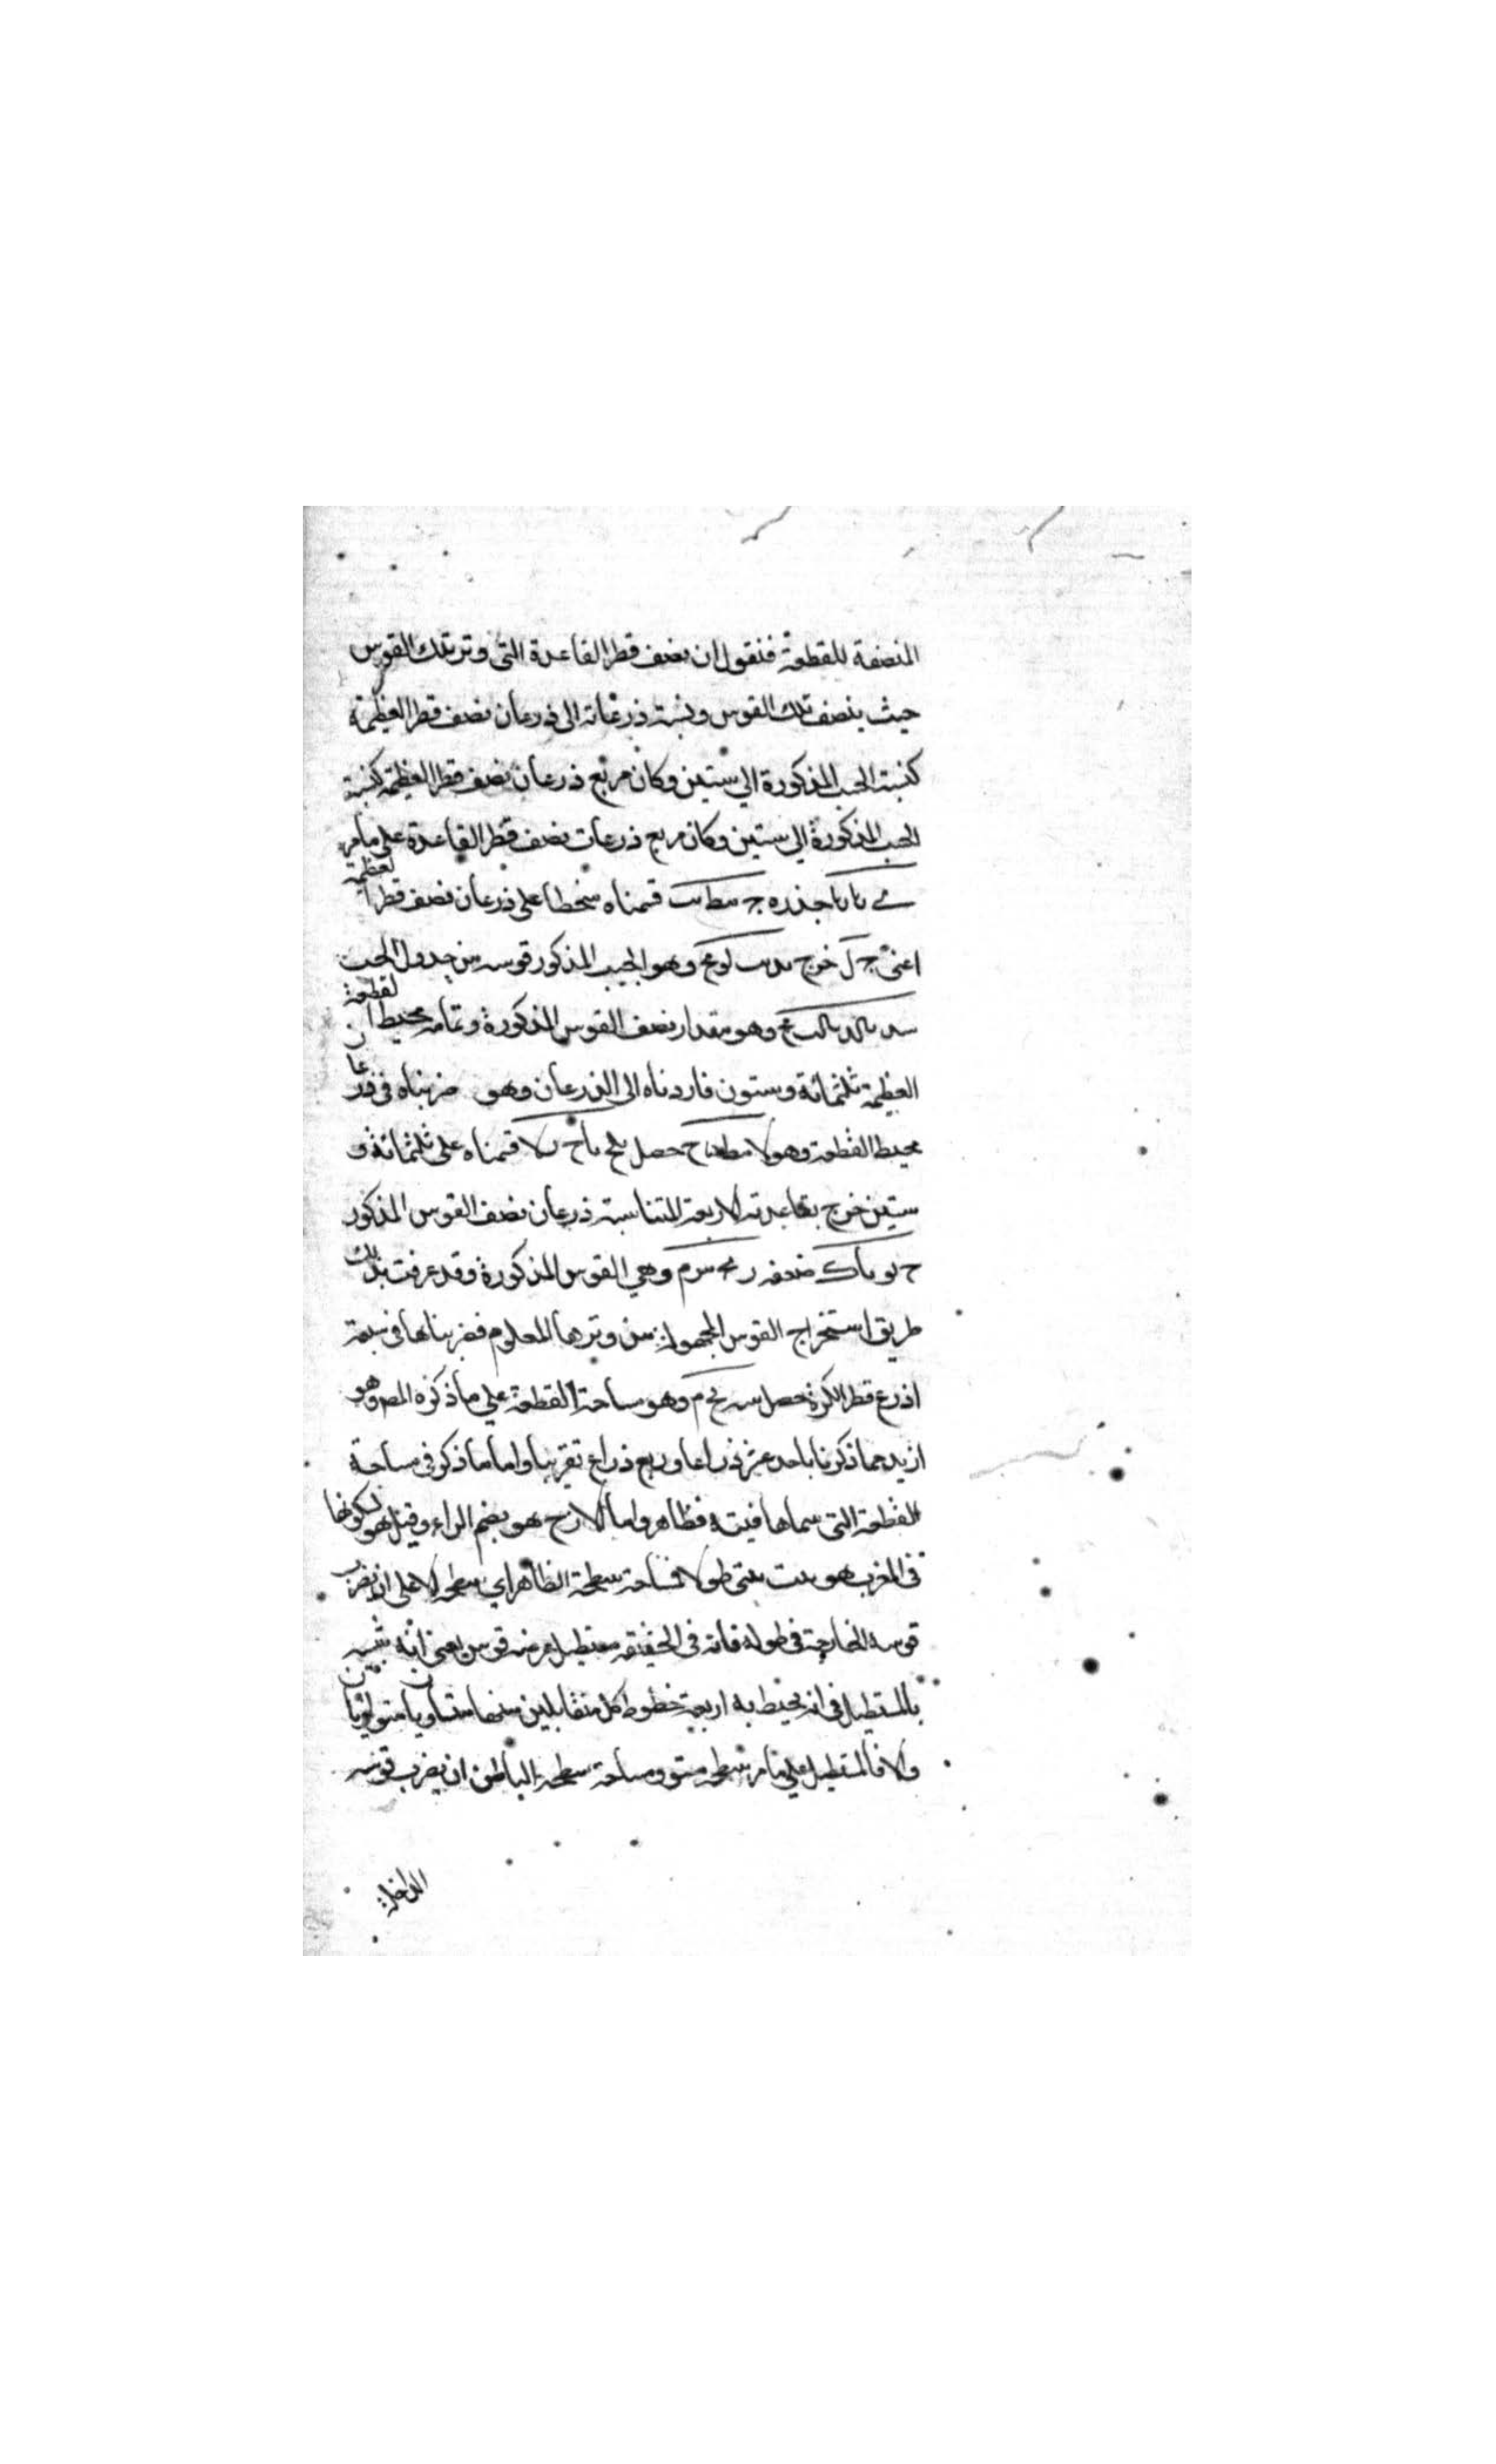 المنصفة للقطعة فنقول ان نصف قطر القاعدة التى وتر تلك القوس
حيث ينصف تلك القوس ونسبة ذرعانه الى ذرعان نصف قطر العظيمة
كنسبة الجيب المذكورة الى ستين وكان مربع ذرعان نصف قطر العظيمة كنسبة
الجيب المذكورة الى ستين وكان مربع ذرعان نصف قطر القاعدة على ما مر
جذره ج مط قسمناه منحطا على ذرعان نصف قطر العظمة
اعنى ج ل خرج وهو الجيب المذكور قوسه من جدول الجيب
وهو مقدار نصف القوس المذكورة وتمامه محيط القطعة
العظيمة ثلثمائة وستون فاردناه الى الذرعان وهو ضربناه فى ذرعان
محيط القطعة وهو حصل قسمناه على ثلثمائة و
ستين خرج بقاعدته الاربعة المتناسبة ذرعان نصف القوس المذكور
ضعفه وهي القوس المذكورة وقد عرفت بذلك
طريق استخراج القوس المجهولة من وترها المعلوم فضربناها فى سبعة
اذرع قطر الكرة حصل وهو مساحة القطعة على ما ذكره المص وهو
ازيد مما ذكرنا باحد عشر ذراعا وربع ذراع تقريبا واما ما ذكر فى مساحة
القطعة التى سماها فظاهر واما الازج هو بضم الراء وقيل هو لكونها
فى المغرب هو بيت يبنى طولا فمساحة سطحه الظاهر اي سطحه الاعلى ان يضرب
قوسه الخارجة فى طوله فانه فى الحقيقه مستطيل عرضه قوس يعنى انه شبيه
بالمستطيل فى انه يحيط به اربعة خطوط كل متقابلين منها متساويان متوازيان
والا فالمستطيل على ما مر سطحه مستو ومساحة سطحه الباطن ان يضرب قوسه
الداخلة